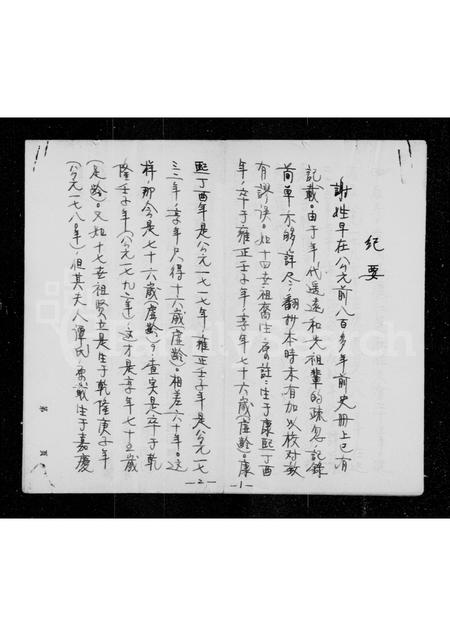 紀要
謝姓早在公元前八百多年前史冊上已有
記載。由于年代遥遠和先祖輩的疎忽，記錄
簡單不夠詳尽，翻抄本時未有加以核对致
有謬误。如十四世祖裔生 註：生于康熙丁酉
年，卒于雍正壬子年，享年七十六歲（虛齡）。康
熙丁酉年是公元一七一七年，雍正壬子年是公元一七
三二年，享年只得十六歲（虛齡）。相差六十年。这
样那会是七十六歲（虛齡）？查实是卒于乾
隆壬子年（公元一七九二年），这才是享年七十五歲
（足齡）。又如十七世祖賢 是生于乾隆庚子年
（公元一七八〇年），但其夫人譚氏， 載生于嘉慶
第 頁
—2—
—1—